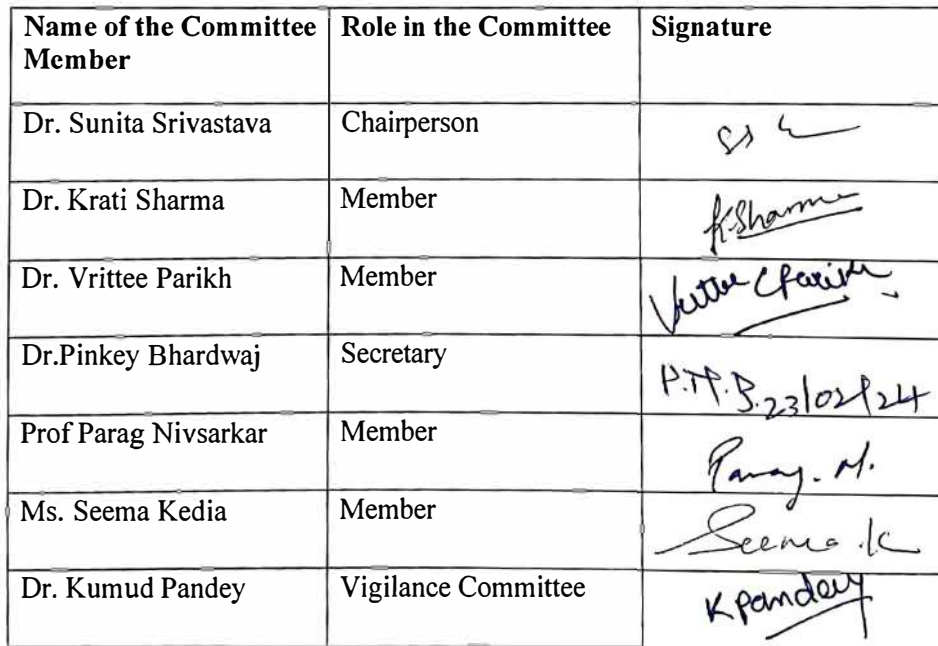 Name of the Committee Member Role in the Committee Signature
Dr. Sunita Srivastava Chairperson
Dr. Krati Sharma Member K.Sharma
Dr. Vrittee Parikh Member Vrittee C Parikh
Dr.Pinkey Bhardwaj Secretary 23/02/24
Prof Parag Nivsarkar Member Parag. N.
Ms. Seema Kedia Member Seema .K
Dr. Kumud Pandey Vigilance Committee K Pandey